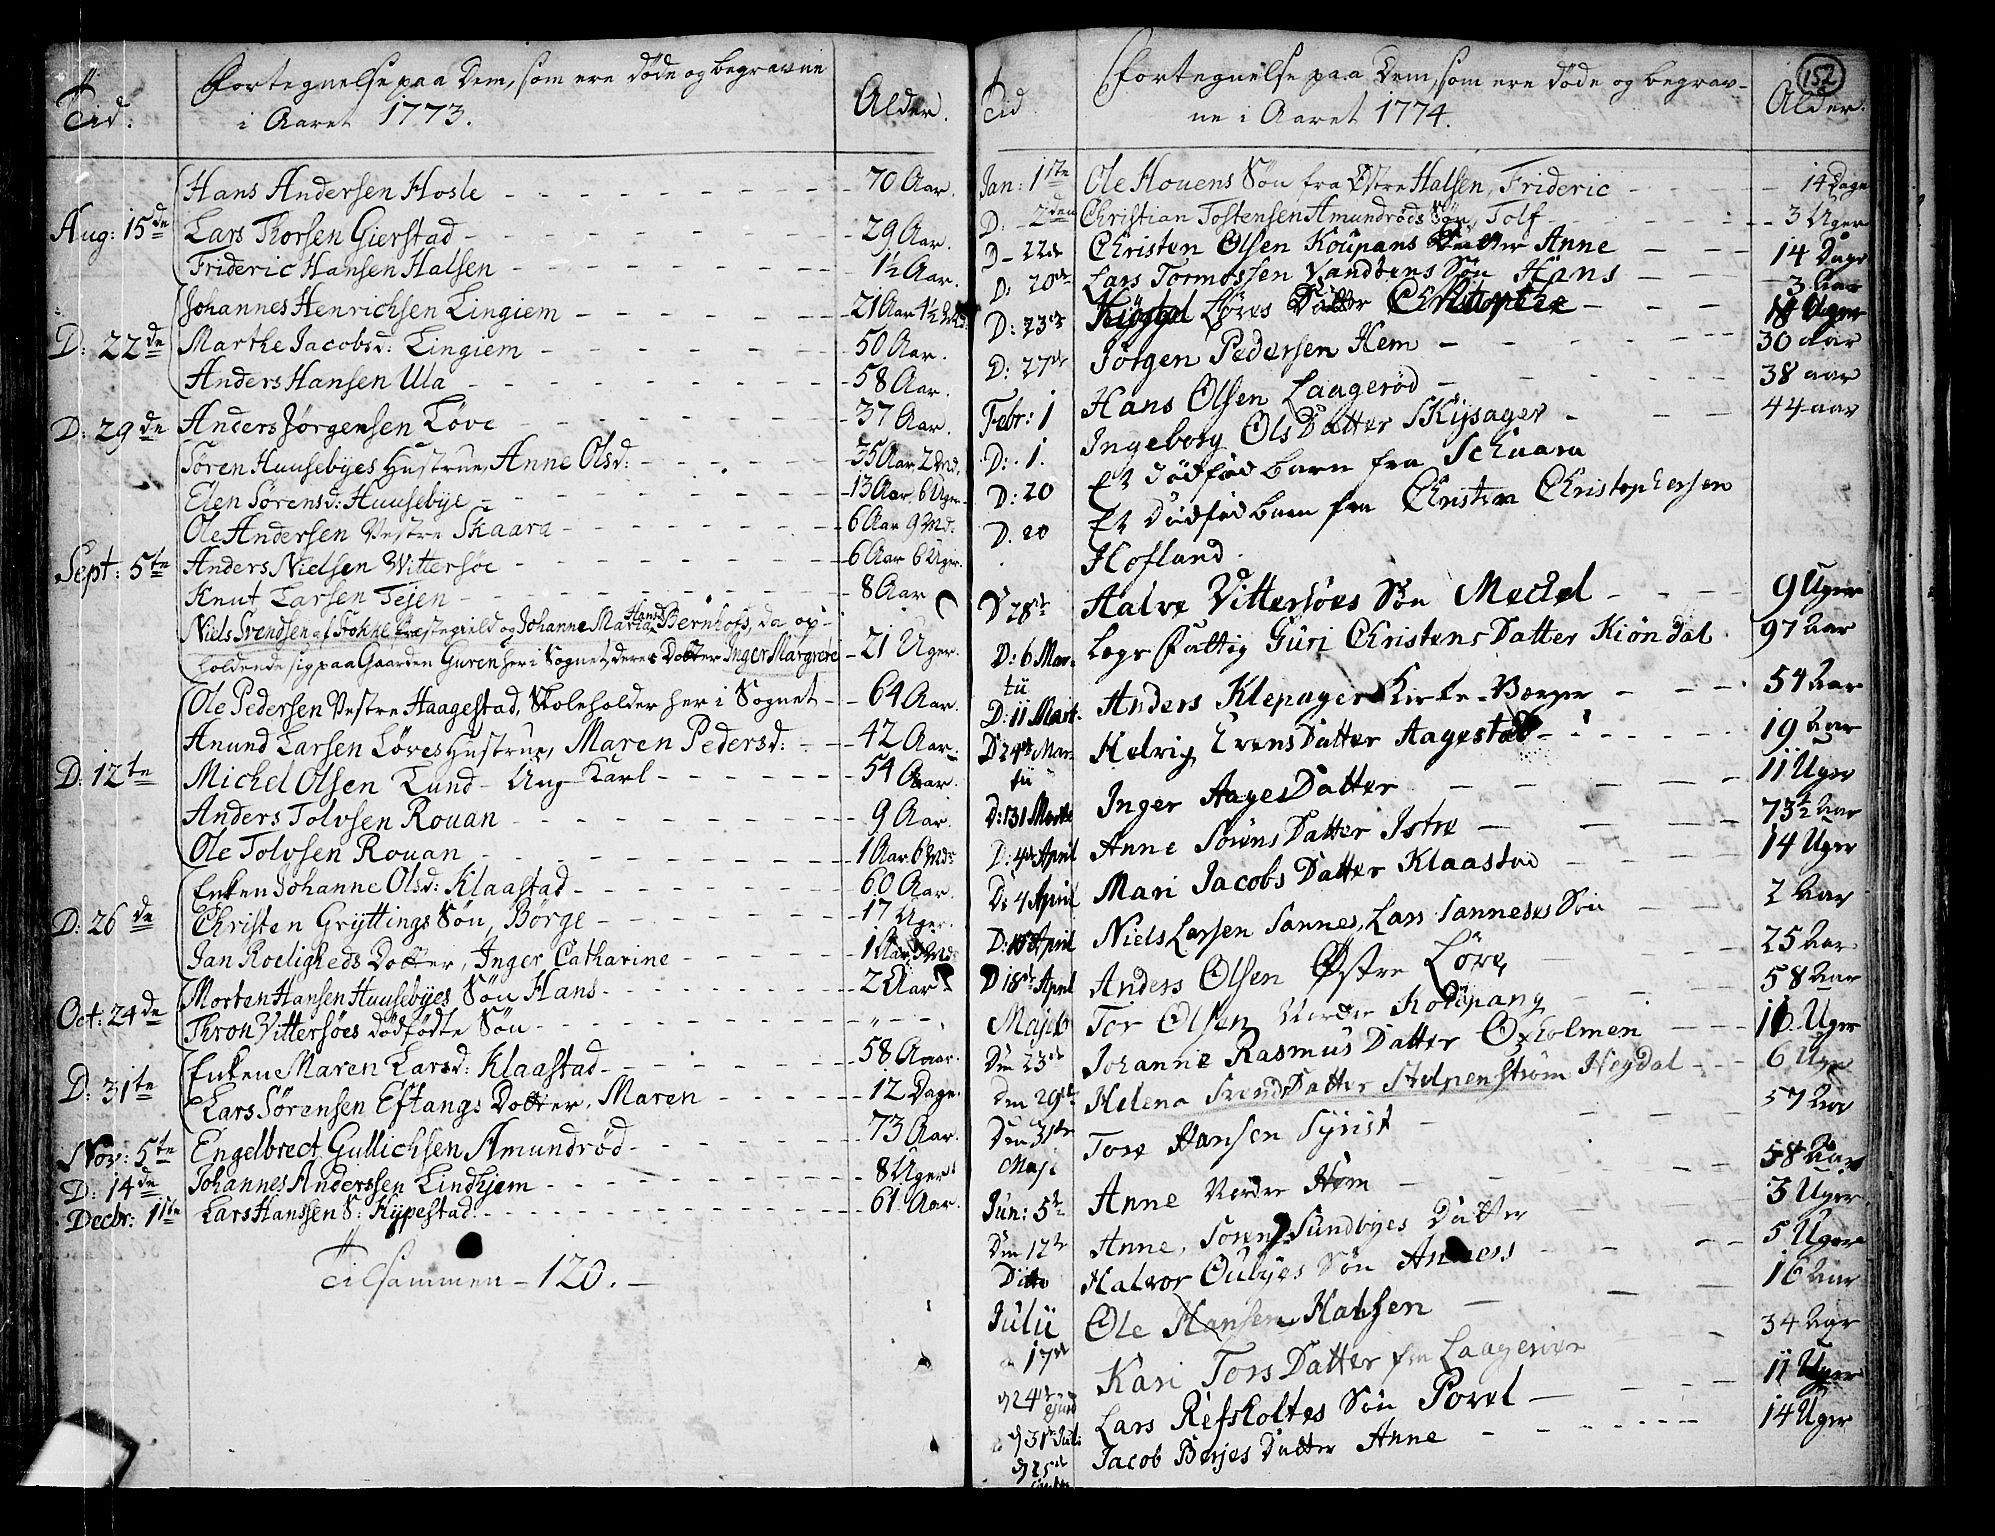 Tid.
Fortegnelse paa Dem, som ere døde og begravne
i Aaret 1773.
Alder.
Hans Andersen Hosle - 70 Aar.
Aug: 15de Lars Thorsen Gierstad - 29 Aar.
Frideric Hansen Halsen - 1½ Aar.
Johannes Henrichsen Lingiem - 21 Aar
D: 22de Marthe Jacobsd: Lingiem - 50 Aar.
Anders Hansen Ula - 58 Aar.
D: 29de Anders Jørgensen Løve - 37 Aar.
Søren Huusebyes Hustrue, Anne Olsd: - 35 Aar 2 Md.
Elen Sørensd: Huusebye - 13 Aar 6 Uger.
Ole Andersen Vestre Skaara - 6 Aar 9 Md:
Sept: 5te Anders Nielsen Wittersøe - 6 Aar 6 Uger.
Knut Larsen Tejen - 8 Aar
Niels Svendsen af Præstegield og Johanne Maria Hansd. Bernhofs, da op-
holdende sig paa Gaarden Guren her i Sognet, deres Dotter Inger Margrete - 21 Uger.
Ole Pedersen Vestre Haagestad, Skoleholder her i Sognet - 64 Aar.
Anund Larsen Løves Hustrue, Maren Pedersd: - 42 Aar.
D: 12te Michel Olsen Lund - Ung Karl - 54 Aar.
Anders Tolvsen Rouan - 9 Aar.
Ole Tolvsen Rouan - 1 Aar 6 Mdr
Enken Johanne Olsd: Klaastad - 60 Aar.
D: 26de Christen Gryttings Søn, Børge - 17 Uger.
Jan Roeligheds Dotter, Inger Catharine - 1 Aar
Oct: 24de Morten Hansen Huusebyes Søn Hans - 2 Aar
Thron Vittersøes dødfødte Søn -
D: 31te Enken Maren Larsd: Klaastad - 58 Aar.
Lars Sørensen Eftangs Dotter, Maren - 12 Dage.
Nov: 5te Engelbrect Gullichsen Amundrød - 73 Aar.
D: 14de Johannes Anderssen Lindhjem - 8 Uger
Decbr: 1ste Lars Hanssen S: Kypestad - 61 Aar.
Tilsammen - 120.
152
Tid
Fortegnelse paa Dem, som ere døde og begrav-
ne i Aaret 1774.
Alder.
Jan: 1ste Ole Houens Søn fra Østre Halsen, Frideric - 14 Dage
D. 2den Christian Tostensen Amundrøds Søn, Tolf - 3 Uger
D - 22de Christen Olsen Koupans Datter Anne - 14 Dage
D: 20de Lars Tormossen Søn Hans - 3 Aar
D: 23de Løves Datter - Uger
D: 27de Jörgen Pedersen Hem - 30 aar
Febr: 1 Hans Olsen Laagerød - 38 aar
D: 1. Ingeborg Ols Datter Skijsager - 44 aar
D: 20 Et dødfød barn fra Schaara
D. 20 Et dødfød barn fra Christen Christophersen
Hofland.
D 28de Halve Vittersöes Sön Mechel - 9 Uger
D: 6 Mar-
tii Legs Fattig Guri Christens Datter Kiöndal 97 Aar
D: 11 Mart. Anders Klepager Kirke-Værger - 54 Aar
D 24de Mar-
tii Helvig Evens Datter Aagestad - 19 Aar
D: 31 Martii Inger Aages Datter - 11 Uger
D: 4de April Anne Sörens Datter Istre - 73½ Aar
D: 4 April Mari Jacobs Datter Klaastad - 14 Uger
D: April Niels Larsen Sannes, Lars Sanneses Sön - 2 Aar
D 18de April Anders Olsen Østre Löve, - 25 Aar
Maji 6 Tor Olsen Nordre Kopang - 58 Aar
Den 23de Johanne Rasmus Datter Oxholmen - 16 Uger
den 29de Helena Svends Datter Heydal - 6 Uger
Den 31te
Maji Tore Hansen - 57 Aar
Jun: 5te Anne Nordre Hem - 58 Aar
Den 12te Anne, Sören Sundbyes Datter - 3 Uger
Ditto Halvor Oulyes Sön - 5 Uger
Julii
17de Ole Hansen Halsen - 16 Aar
D 24de Kari Tors Datter fra - 34 Aar
D 31te Juli Lars Refsholtes Sön Povel - 11 Uger
D 25de Jacob Berjes Datter Anne - 14 Uger